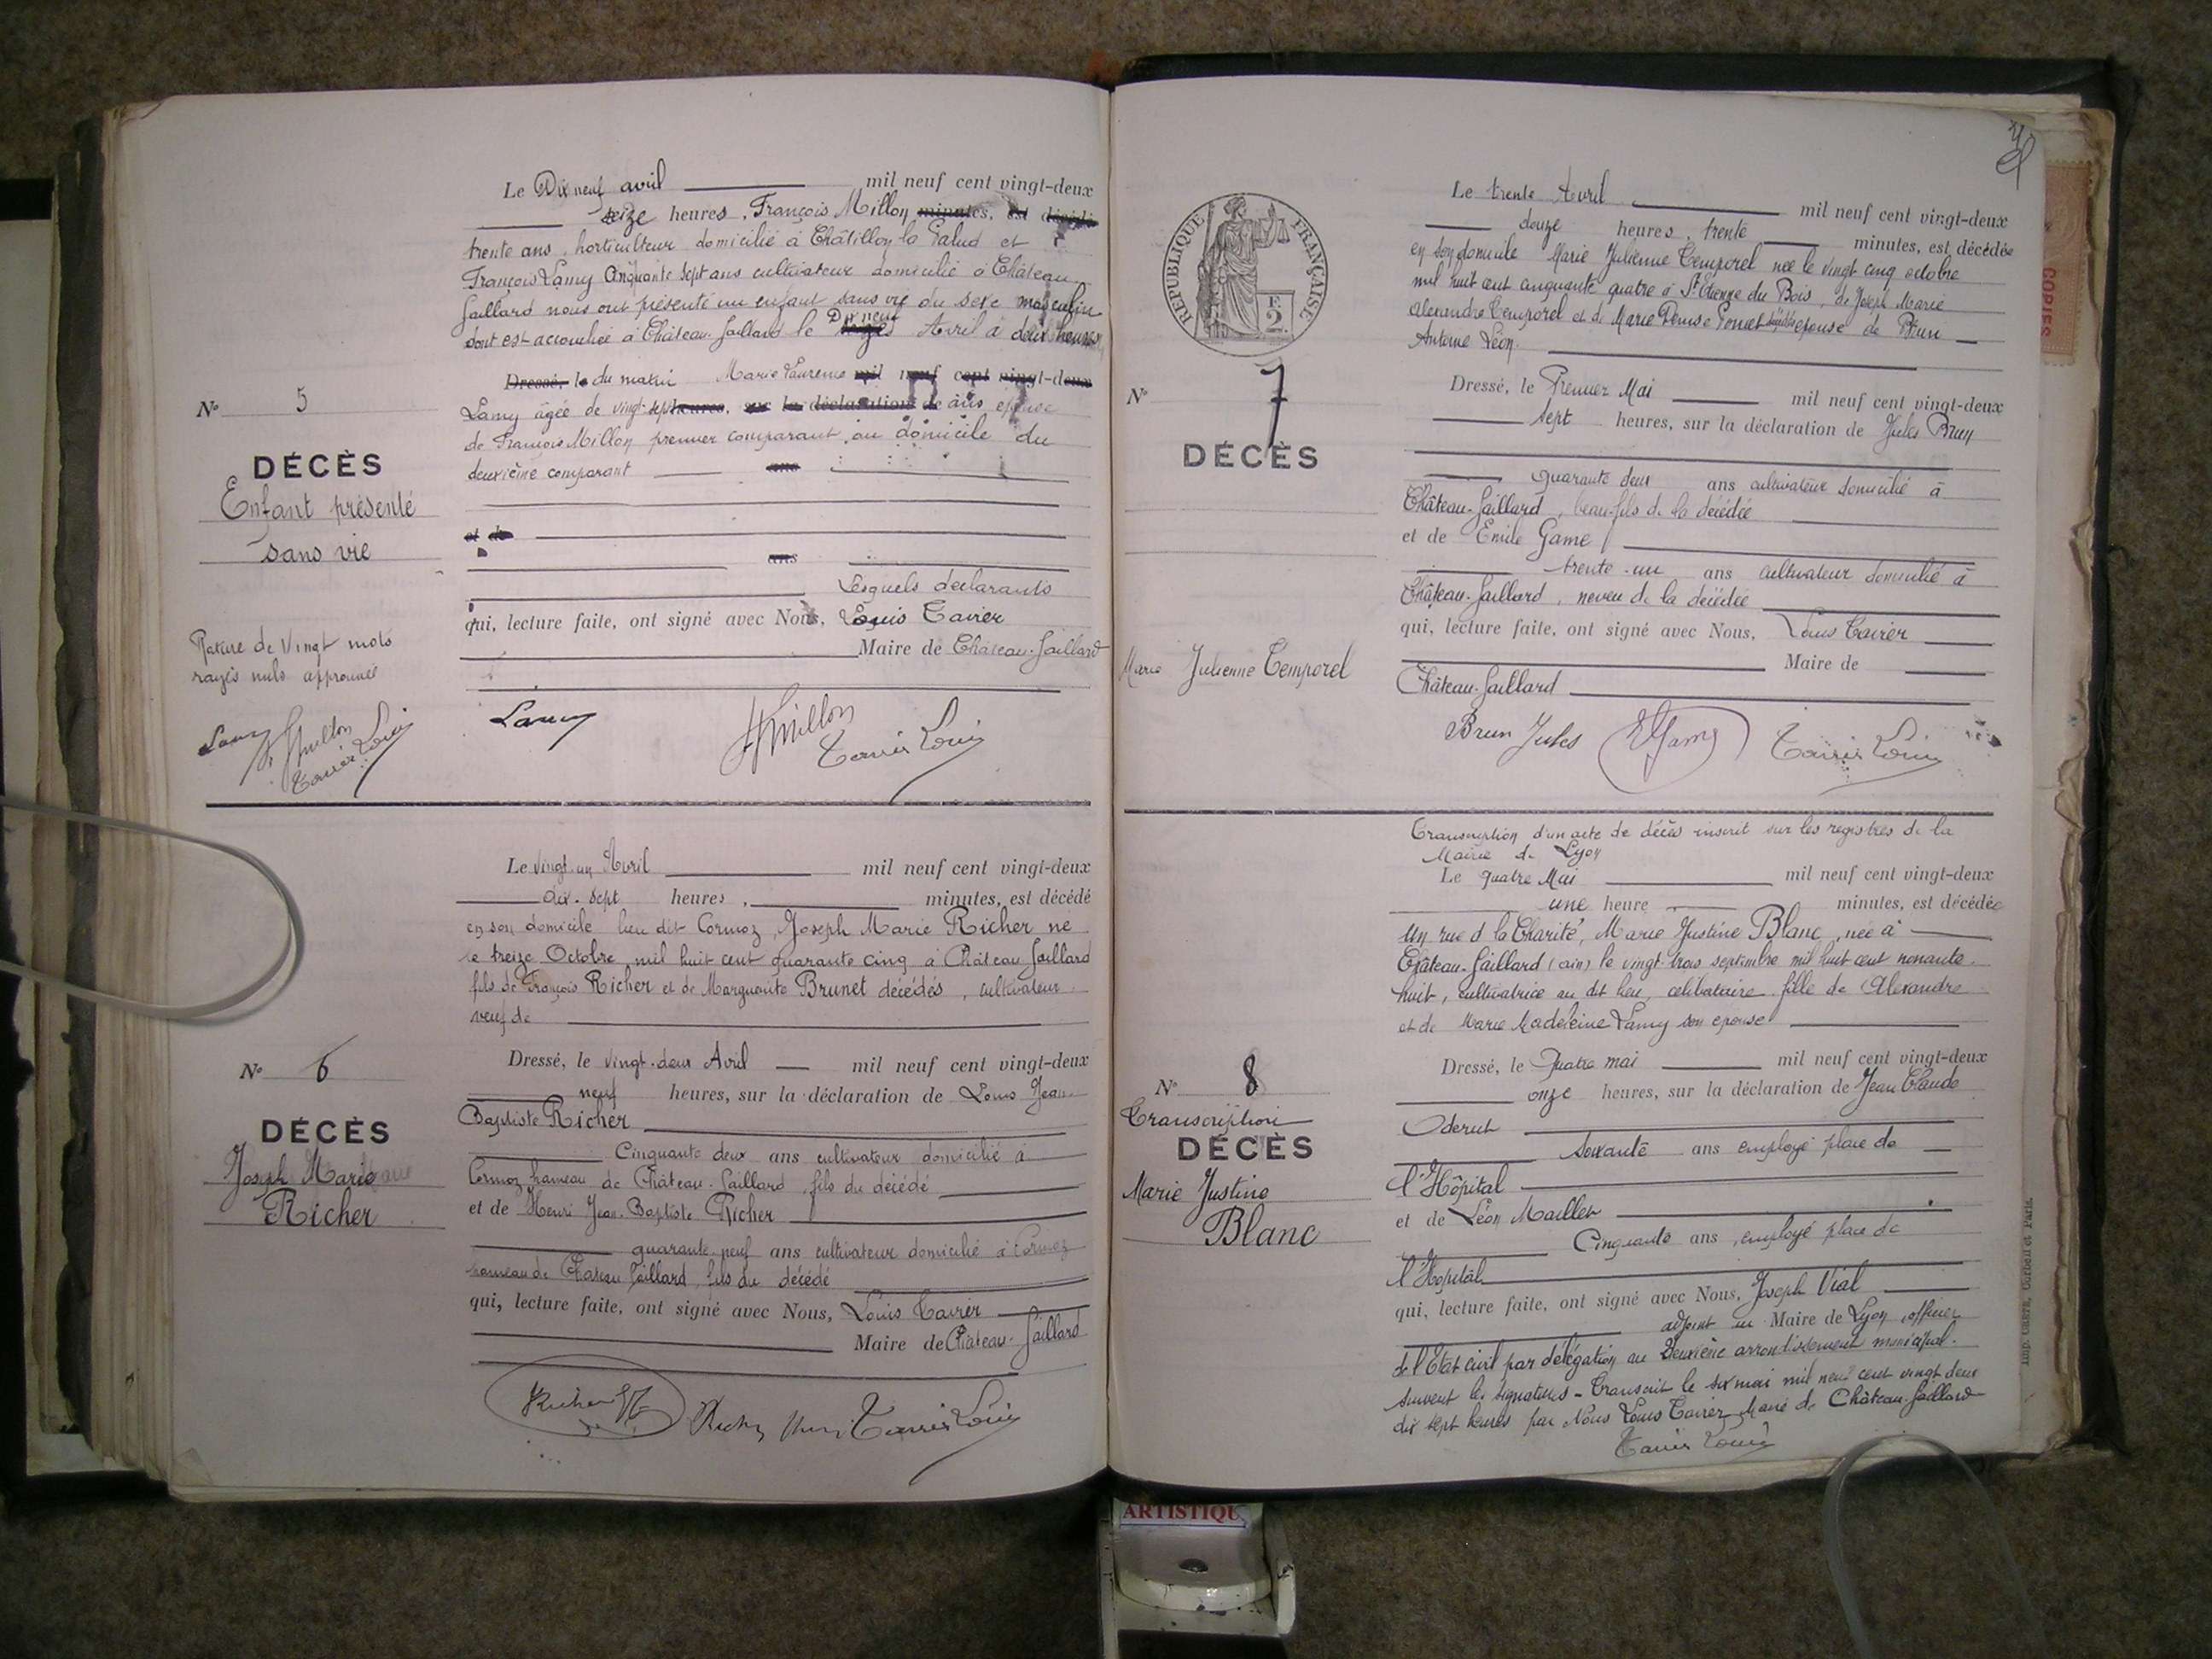 Le Dix neuf avril mil neuf cent vingt-deux
seize heures, François Millon minutes, est décédé
trente ans, horticulteur domicilié à Châtillon la Palud et
François Lamy Cinquante sept ans cultivateur domicilié à Château
Gaillard nous ont présenté un enfant sans vie du sexe masculin
dont est accouchée à Château-Gaillard le Dix neuf Avril à deux heures
Dressé, le du matin Marie Laurence mil neuf cent vingt-deux
Lamy âgée de vingt-sept heures, sur la déclaration de ans epouse
de François Millon premier comparant, au domicile du
deuxième comparant ans
et de
ans
Lesquels declarants
qui, lecture faite, ont signé avec Nous, Louis Tavier
Maire de Château-Gaillard
Lamy Millon Tavier Louis
Nº 5
DÉCÈS
Enfant présenté
sans vie
Rature de Vingt mots
rayés nuls approuvée
Lamy Millon
Tavier Louis
Le vingt un Avril mil neuf cent vingt-deux
dix-sept heures, minutes, est décédé
en son domicile lieu dit Cormoz, Joseph Marie Richer né
le treize Octobre mil huit cent quarante cinq à Château Gaillard
fils de François Richer et de Marguerite Brunet décédés, cultivateur
veuf de
Dressé, le vingt-deux Avril mil neuf cent vingt-deux
neuf heures, sur la déclaration de Louis Jean
Baptiste Richer
Cinquante deux ans cultivateur domicilié à
Cormoz hameau de Château-Gaillard, fils du décédé
et de Henri Jean-Baptiste Richer
quarante-neuf ans cultivateur domicilié à Cormoz
hameau de Château Gaillard, fils du décédé
qui, lecture faite, ont signé avec Nous, Louis Tavier
Maire de Château-Gaillard
Richer Richer Henri Tavier Louis
Nº 6
DÉCÈS
Joseph Marie
Richer
RÉPUBLIQUE FRANÇAISE
F.
2.
COPIES
Le trente Avril mil neuf cent vingt-deux
douze heures, trente minutes, est décédée
en son domicile Marie Julienne Temporel née le vingt cinq octobre
mil huit cent cinquante quatre à St Etienne du Bois, de Joseph Marie
Alexandre Temporel et de Marie Denise Poncet décédés epouse de Brun
Antoine Léon.
Dressé, le Premier Mai mil neuf cent vingt-deux
sept heures, sur la déclaration de Jules Brun
quarante deux ans cultivateur domicilié à
Château-Gaillard, beau-fils de la décédée
et de Emile Game
trente-un ans cultivateur domicilié à
Château-Gaillard, neveu de la décédée
qui, lecture faite, ont signé avec Nous, Louis Tavier
Maire de
Château-Gaillard
Brun Jules E Game Tavier Louis
Nº 7
DÉCÈS
Marie Julienne Temporel
Transcription d'un acte de décès inscrit sur les registres de la
Mairie de Lyon
Le quatre Mai mil neuf cent vingt-deux
une heure minutes, est décédée
Un rue d la Charité, Marie Justine Blanc, née à
Château-Gaillard (ain) le vingt-trois septembre mil huit cent nonante
huit, cultivatrice au dit lieu, celibataire fille de Alexandre
et de Marie Madeleine Lamy son epouse
Dressé, le Quatre mai mil neuf cent vingt-deux
onze heures, sur la déclaration de Jean Claude
soixante ans employé place de
l'Hôpital
et de Léon Maillet
Cinquante ans, employé place de
l'Hopital
qui, lecture faite, ont signé avec Nous, Joseph Vial
adjoint au Maire de Lyon, officier
de l'Etat civil par délégation au Deuxième arrondissement municipal.
suivent les signatures - Transcrit le six mai mil neuf cent vingt deux
dix sept heures par Nous Louis Tavier Maire de Château-Gaillard
Tavier Louis
Nº 8
Transcription
DÉCÈS
Marie Justine
Blanc
Corbeil et Paris.
ARTISTIQU